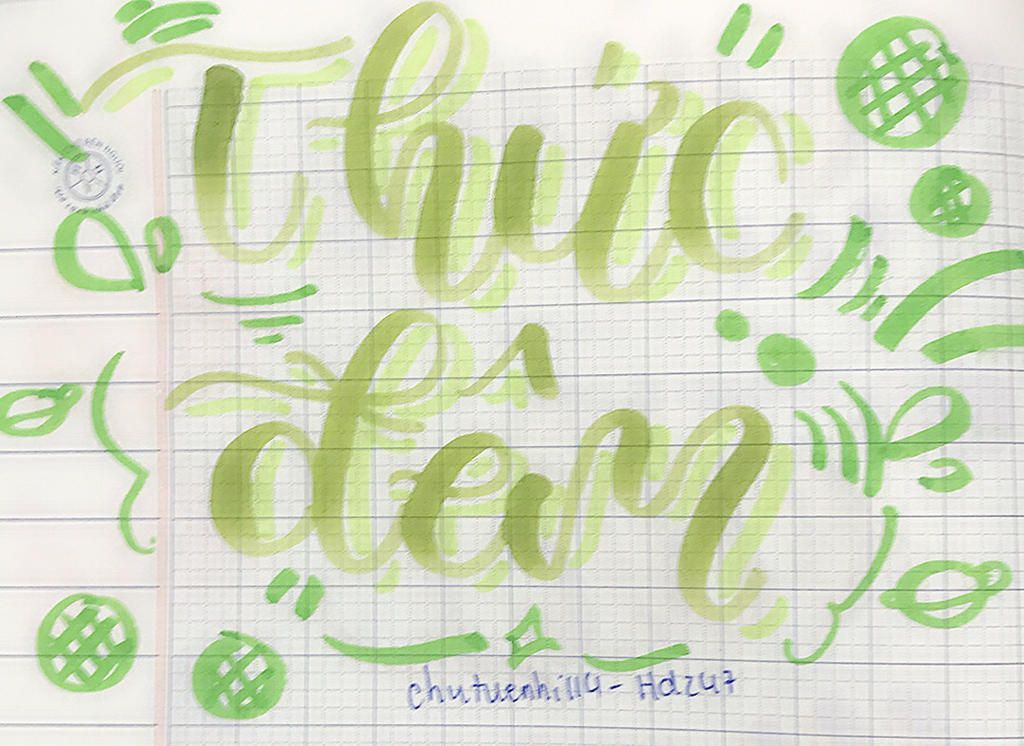 Thức
đêm
chutuenhi114 - Hdz47